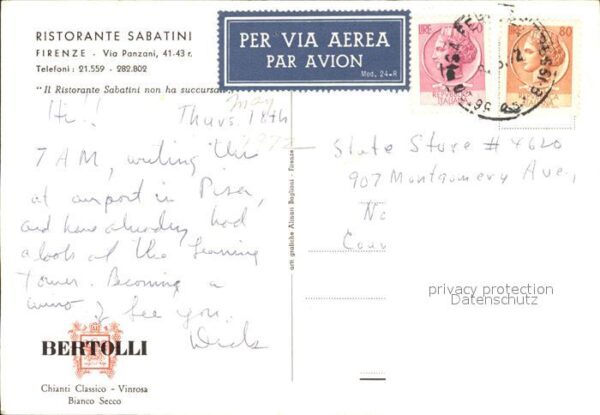 RISTORANTE SABATINI
FIRENZE - Via Panzani, 41-43 r.
Telefoni: 21.559 - 282.802
"Il Ristorante Sabatini non ha succursa
PER VIA AEREA
PAR AVION
Mod. 24-R
LIRE
LIRE 80
ITALIANA
May
Hi!! Thurs 18th
1972
7 AM, writing this
at airport in Pisa,
and have already had
a look at the Leaning
Tower. Becoming a
wino I see you.
Dick
State Store # 4620
907 Montgomery Ave.,
No
arti grafiche Alinari Baglioni - Firenze
privacy protection
Datenschutz
BERTOLLI
Chianti Classico - Vinrosa
Bianco Secco